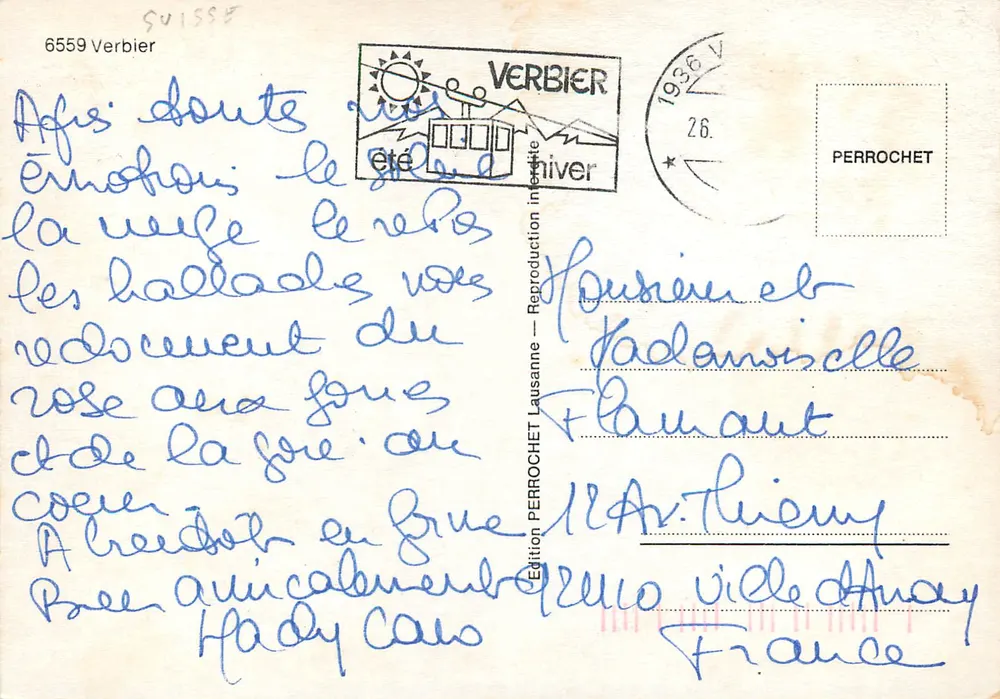 SUISSE
6559 Verbier
VERBIER
été hiver
1936 V
26.
PERROCHET
Après toutes nos
émotions le soleil
la neige le repos
les ballades nous
redonnent du
rose aux joues
et de la joie au
coeur.
A bientôt en forme
Bien amicalement
Mady
Edition PERROCHET Lausanne — Reproduction interdite
Monsieur et
Mademoiselle
Flamant
12 Av. Thierry
92410 Ville d'Avray
France